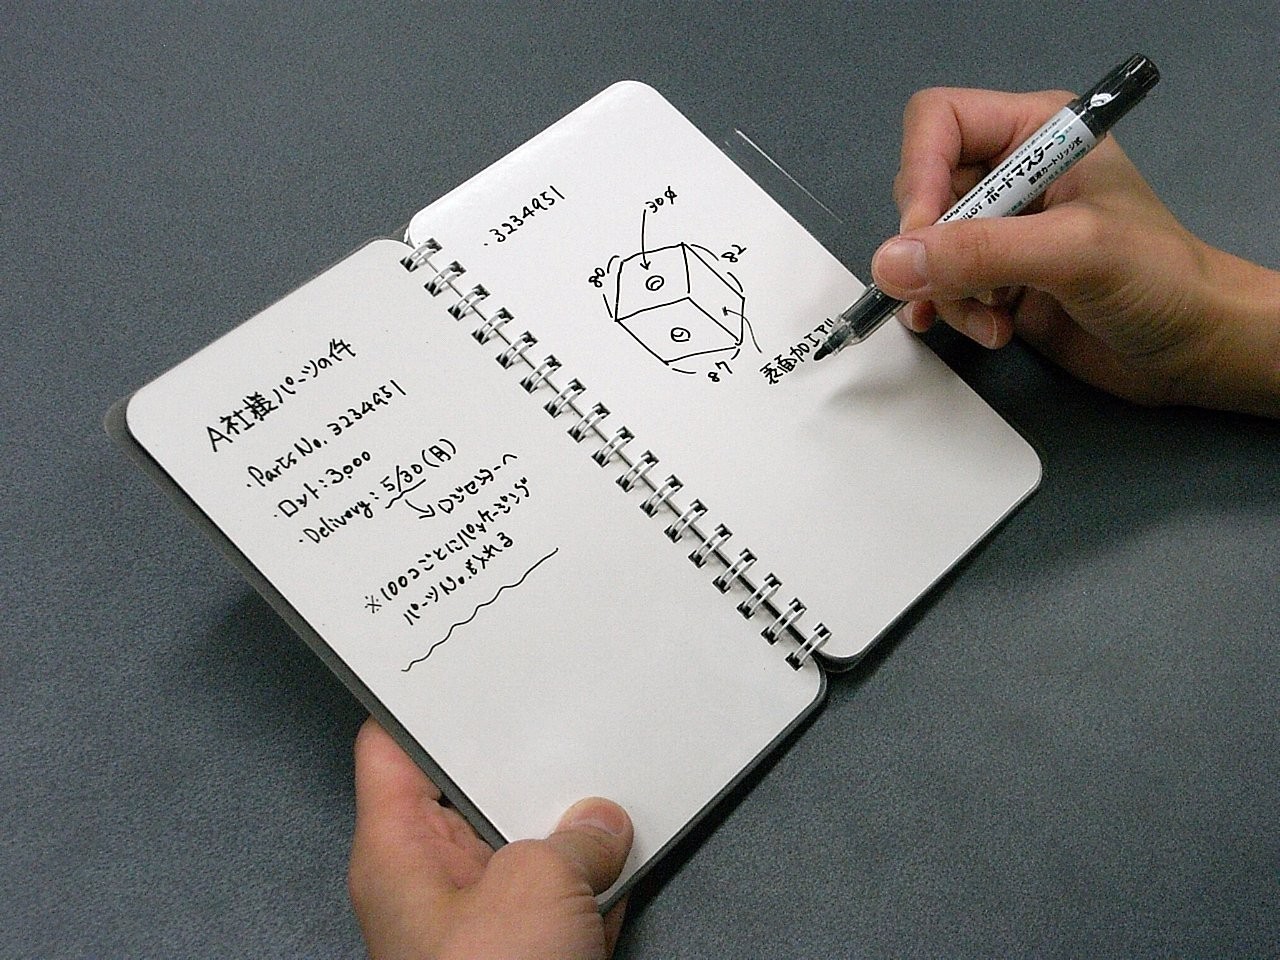 A社様パーツの件
・Parts No. 3234951
・ロット：3,000
・Delivery：5/30（月）
→ロジセンターへ
※100コごとにパッケージング
パーツNo.も入れる
・3234951
30φ
80
82
87
表面加工アリ
Whiteboard Marker
PILOT ボードマスターS
直液カートリッジ式